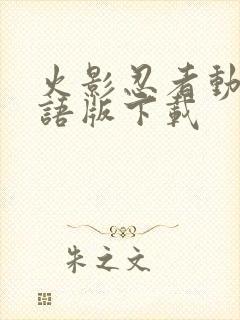 火影忍者動
語版下載
朱之文